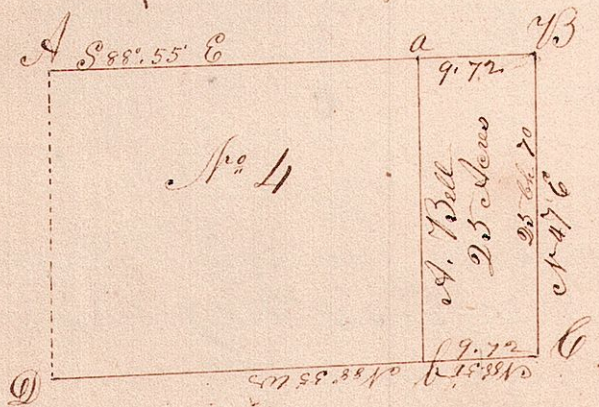 A S 88°. 55' E a B
9. 72
No 4
A. Bell
25 Acres
25 Ch. 70
N 47' E
9. 72
D N 88° 55' W b C